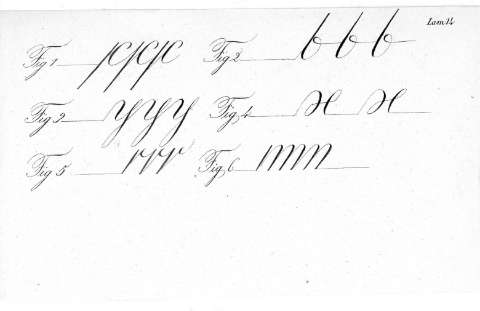 Lam. 14
Fig 1 Fig 2 b b b
Fig 3 y y y Fig 4 x x
Fig 5 Fig 6